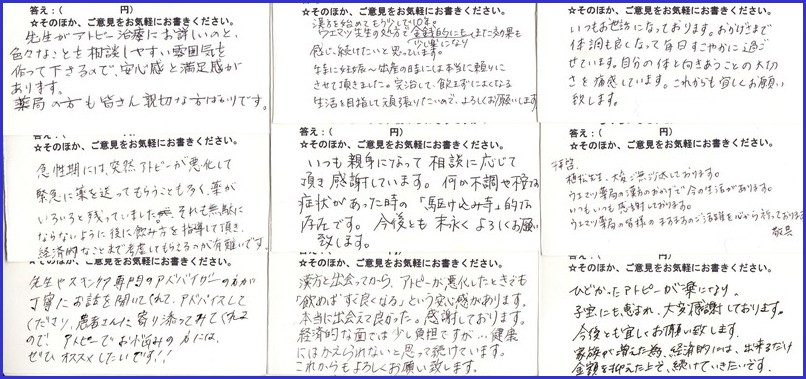 答え：(　　　円)
☆そのほか、ご意見をお気軽にお書きください。
先生がアトピー治療にお詳しいのと、
色々なことを相談しやすい雰囲気を
作って下さるので、安心感と満足感が
あります。
薬局の方も皆さん親切な方ばかりです。
☆そのほか、ご意見をお気軽にお書きください。
漢方を始めてもう少しで10年。
ウエマツ先生の処方で金銭的にも
少し楽になり
感じ、続けたいと思っています。
特に妊娠〜出産の時には本当に頼りに
させて頂きました。完治して、飲まずによくなる
生活を目指して頑張りたいので、よろしくお願いします
☆そのほか、ご意見をお気軽にお書きください。
いつもお世話になっております。おかげさまで
体調も良くなって毎日すこやかに過ご
せています。自分の体と向きあうことの大切
さを痛感しています。これからも宜しくお願い
致します。
☆そのほか、ご意見をお気軽にお書きください。
急性期には、突然アトピーが悪化して
緊急に薬を送ってもらうことも多く、薬が
いろいろと残っていました それも無駄に
ならないように後に飲み方を指導して頂き、
経済的なことまで考慮してもらえるのが有難いです。
答え：(　　　円)
☆そのほか、ご意見をお気軽にお書きください。
いつも親身になって相談に応じて
頂き感謝しています。何か不調や
症状があった時の「駆け込み寺」的な
存在です。今後とも末永くよろしくお願い
致します。
答え：(　　　円)
☆そのほか、ご意見をお気軽にお書きください。
拝啓、
植松先生、大変ご無沙汰しております。
ウエマツ薬局の漢方のおかげで今の生活があります。
いつもいつも感謝しております。
ウエマツ薬局の皆様のますますのご活躍を心から祈っております
敬具
☆そのほか、ご意見をお気軽にお書きください。
先生やスキンケア専門のアドバイザーの方が
丁寧にお話を聞いてくれて、アドバイスして
くださり、患者さんに寄り添ってみてくれる
ので、アトピーでお悩みの方には、
ぜひオススメしたいです!!
☆そのほか、ご意見をお気軽にお書きください。
漢方と出会ってから、アトピーが悪化したときでも
"飲めばすぐ良くなる"という安心感があります。
本当に出会えて良かった。感謝しております。
経済的な面では少し負担ですが…健康
にはかえられないと思って続けています。
これからもよろしくお願い致します。
☆そのほか、ご意見をお気軽にお書きください。
ひどかったアトピーが楽になり、
子宝にも恵まれ、大変感謝しております。
今後とも宜しくお願い致します。
家族が増えた為、経済的には、出来るだけ
金額を抑えた上で、続けていきたいです。